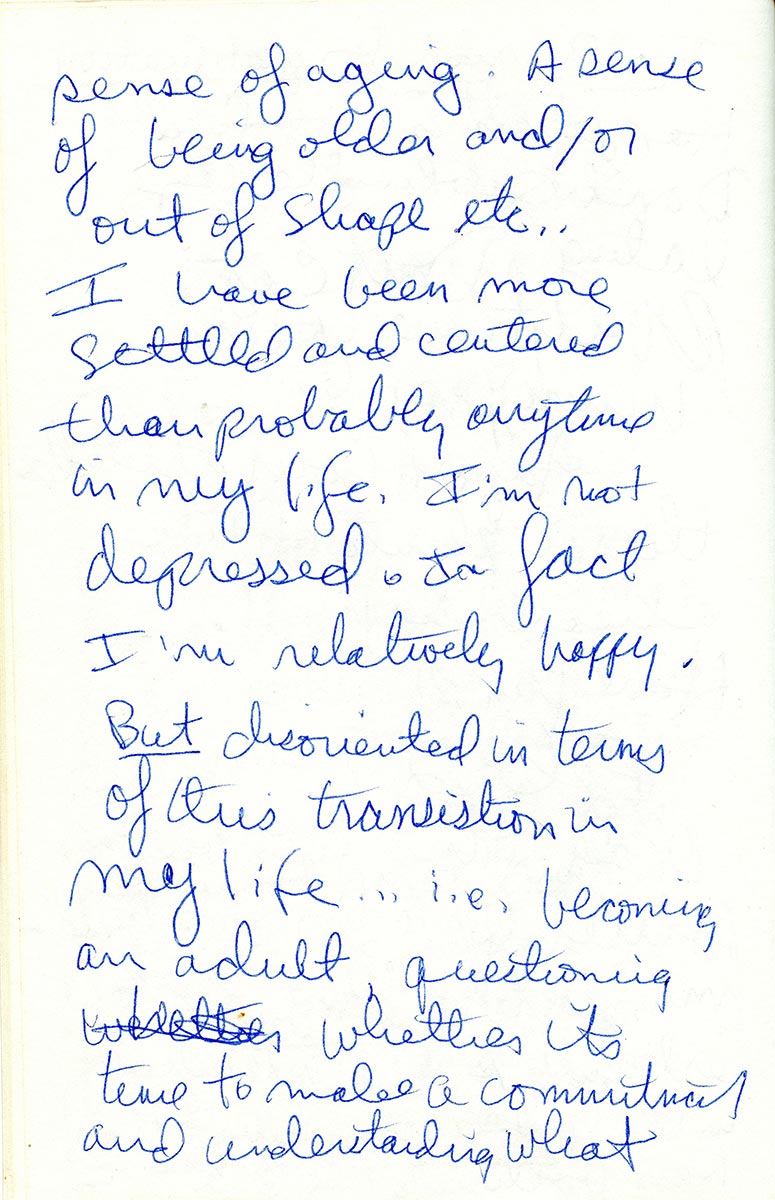 sense of ageing. A sense
of being older and/or
out of shape etc..
I have been more
settled and centered
than probably anytime
in my life. I'm not
depressed. In fact
I'm relatively happy.
But disoriented in terms
of this transistion in
my life... i.e. becoming
an adult, questioning
whether its
time to make a commitment
and understanding what